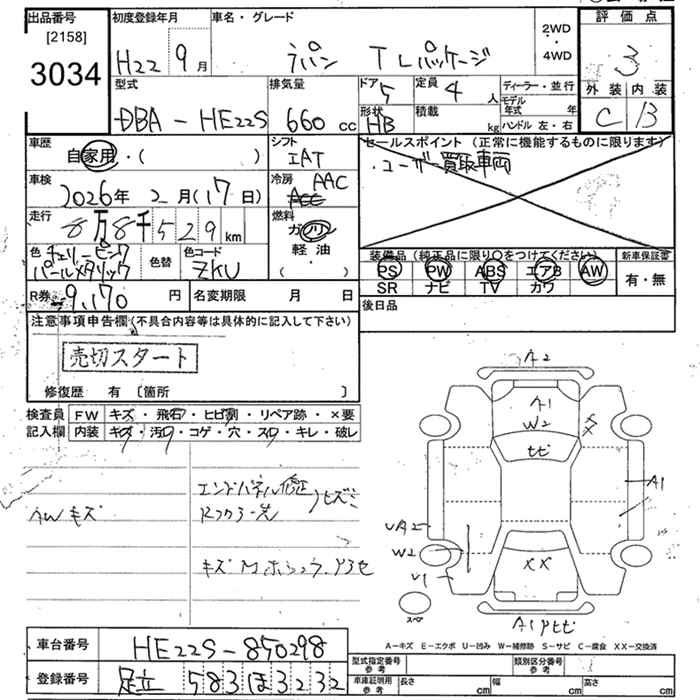 出品番号 初度登録年月 車名・グレード 評価点
[2158]
3034
H22 9月 ラパン TLパッケージ 2WD・4WD 3
型式 排気量 ドア 5 定員 4人 ディーラー・並行 外装 内装
DBA-HE22S 660cc 形状 HB 積載 kg モデル年式 年 C B
ハンドル 左・右
車歴 自家用・( ) シフト IAT セールスポイント (正常に機能するものに限ります)
・ユーザー買取車両
車検 2026年 2月(17日) 冷房 AAC
走行 8万8千529km 燃料 ガソリン
軽油
・( )
色 チェリーピンクパールメタリック 色替 色コード ZKU
装備品(純正品に限り○をつけてください) 新車保証書
PS PW ABS エアB AW 有・無
SR ナビ TV カワ
R券 9,170円 名変期限 月 日 後日品
注意事項申告欄(不具合内容等は具体的に記入して下さい)
売切スタート
修復歴 有 〔箇所 〕
検査員 FW キズ・飛石・ヒビ割・リペア跡・×要
記入欄 内装 キズ・汚れ・コゲ・穴・スレ・キレ・破レ
AWキズ
エンドパネル修正
ヒズミ
A2
A1
W2
ヒビ
A1
UA2
W2
U1
XX
スペア
A1
A-キズ E-エクボ U-凹み W-補修跡 S-サビ C-腐食 XX-交換済
車台番号 HE22S-850298
登録番号 足立 583 ほ 3232
型式指定番号 参考 類別区分番号 参考
車庫証明用 参考 長さ cm 幅 cm 高さ cm